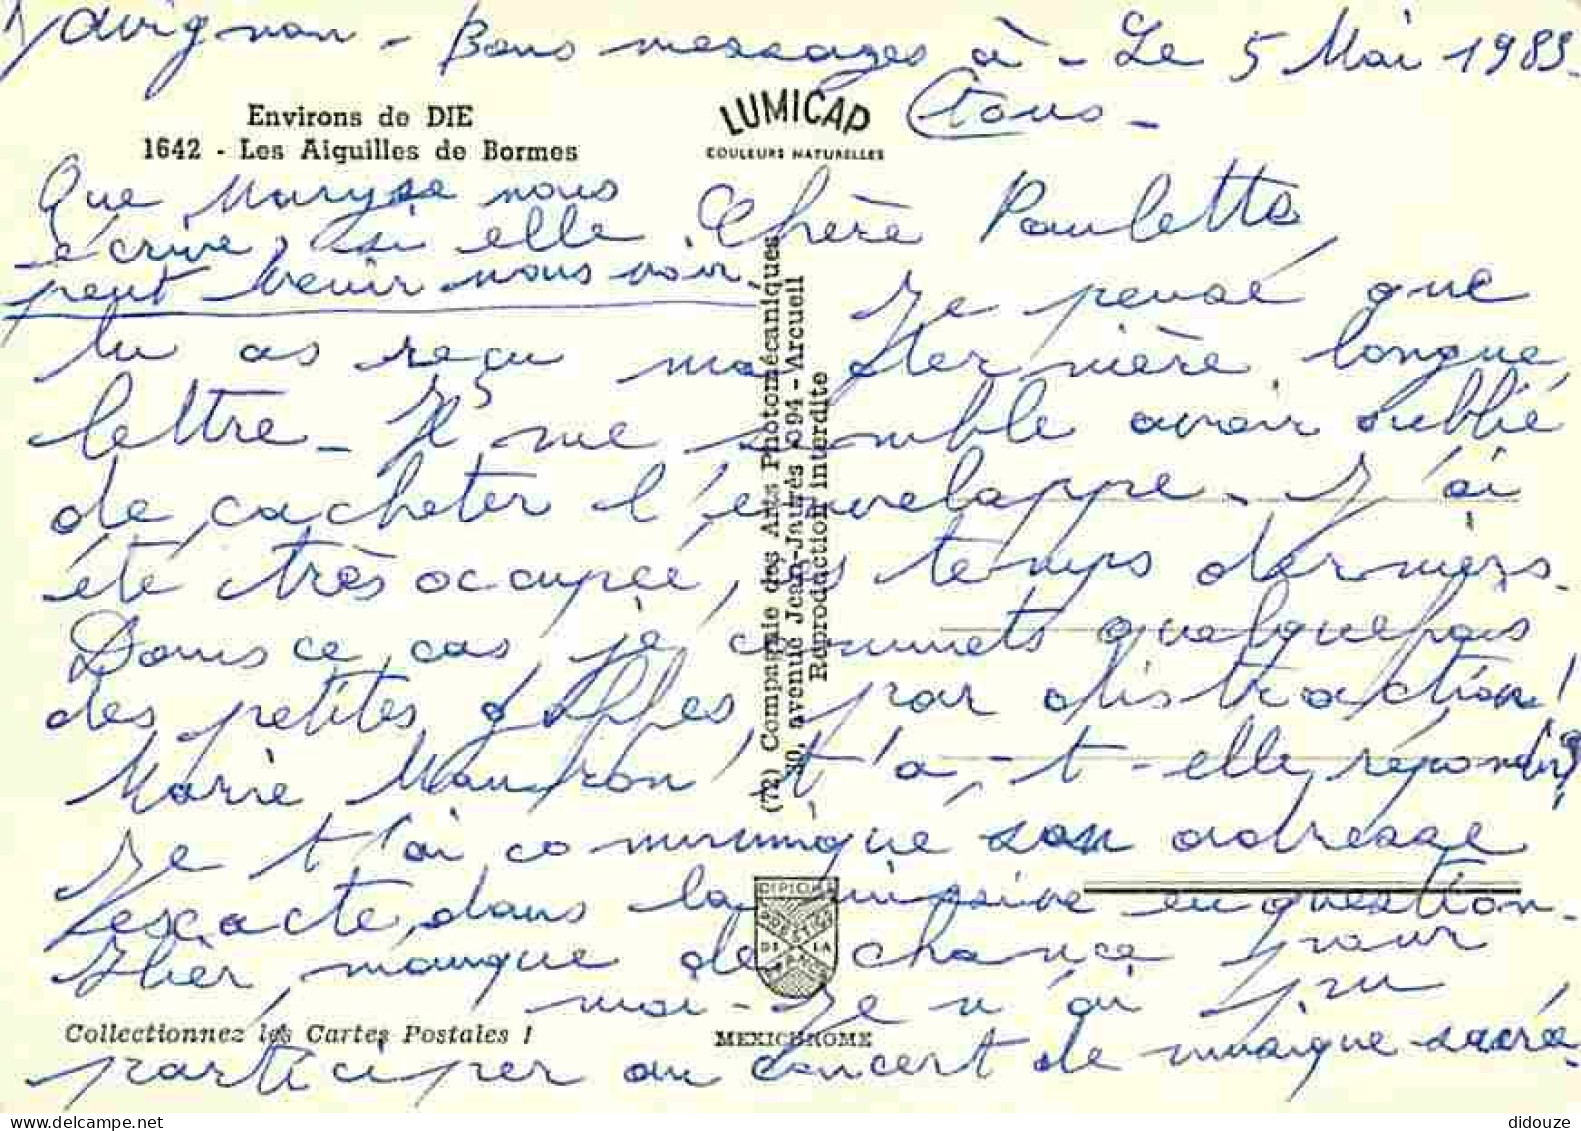 Avignon - Bons messages à - Le 5 Mai 1989.
tous -
Environs de DIE
1642 - Les Aiguilles de Bormes
LUMICAP
COULEURS NATURELLES
Que Maryse nous
écrive, si elle
peut venir nous voir,
Chère Paulette,
Je pense que
tu as reçu ma dernière longue
lettre - Il me semble avoir oublié
de cacheter l'enveloppe - J'ai
été très occupée, temps derniers.
Dans ce cas je commets quelquefois
des petites gaffes, par distraction!
Marie Mauron t'a-t-elle répondu?
Je t'ai communiqué son adresse
exacte, dans la missive en question.
Hier, manque de chance pour
moi - Je n'ai pu
participer au concert de musique sacrée.
(72) Compagnie des Arts Photomécaniques
30, avenue Jean-Jaurès - 94 - Arcueil
Reproduction interdite
DIPLOME
PRESTIGE
DE LA
Collectionnez les Cartes Postales !
MEXICHROME
didouze